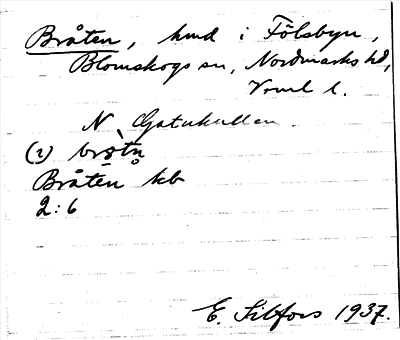 Bråten, hmd i Fölsbyn,
Blomskogs sn, Nordmarks hd,
Vrml l.
N. Gatukullen.
(2) brɔ̀tn̥
Bråten kb
2:6
E. Silfors 1937.